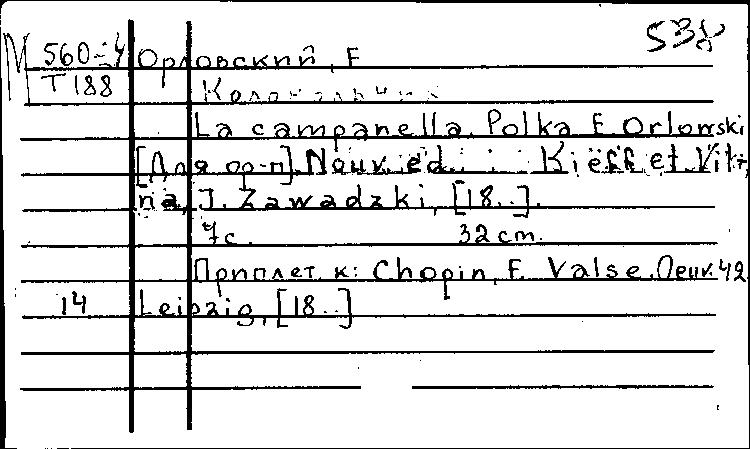 М 560-4 Орловский, Е 538
Т 188 Колокольчик
La campanella. Polka E. Orlowski
[Для ор-п]. Nouv. ed. Kiëff et Vil-
na, J. Zawadzki, [18..].
7 с. 32 cm.
Приплет. к: Chopin, F. Valse. Oeuv. 42
14 Leipzig, [18..]